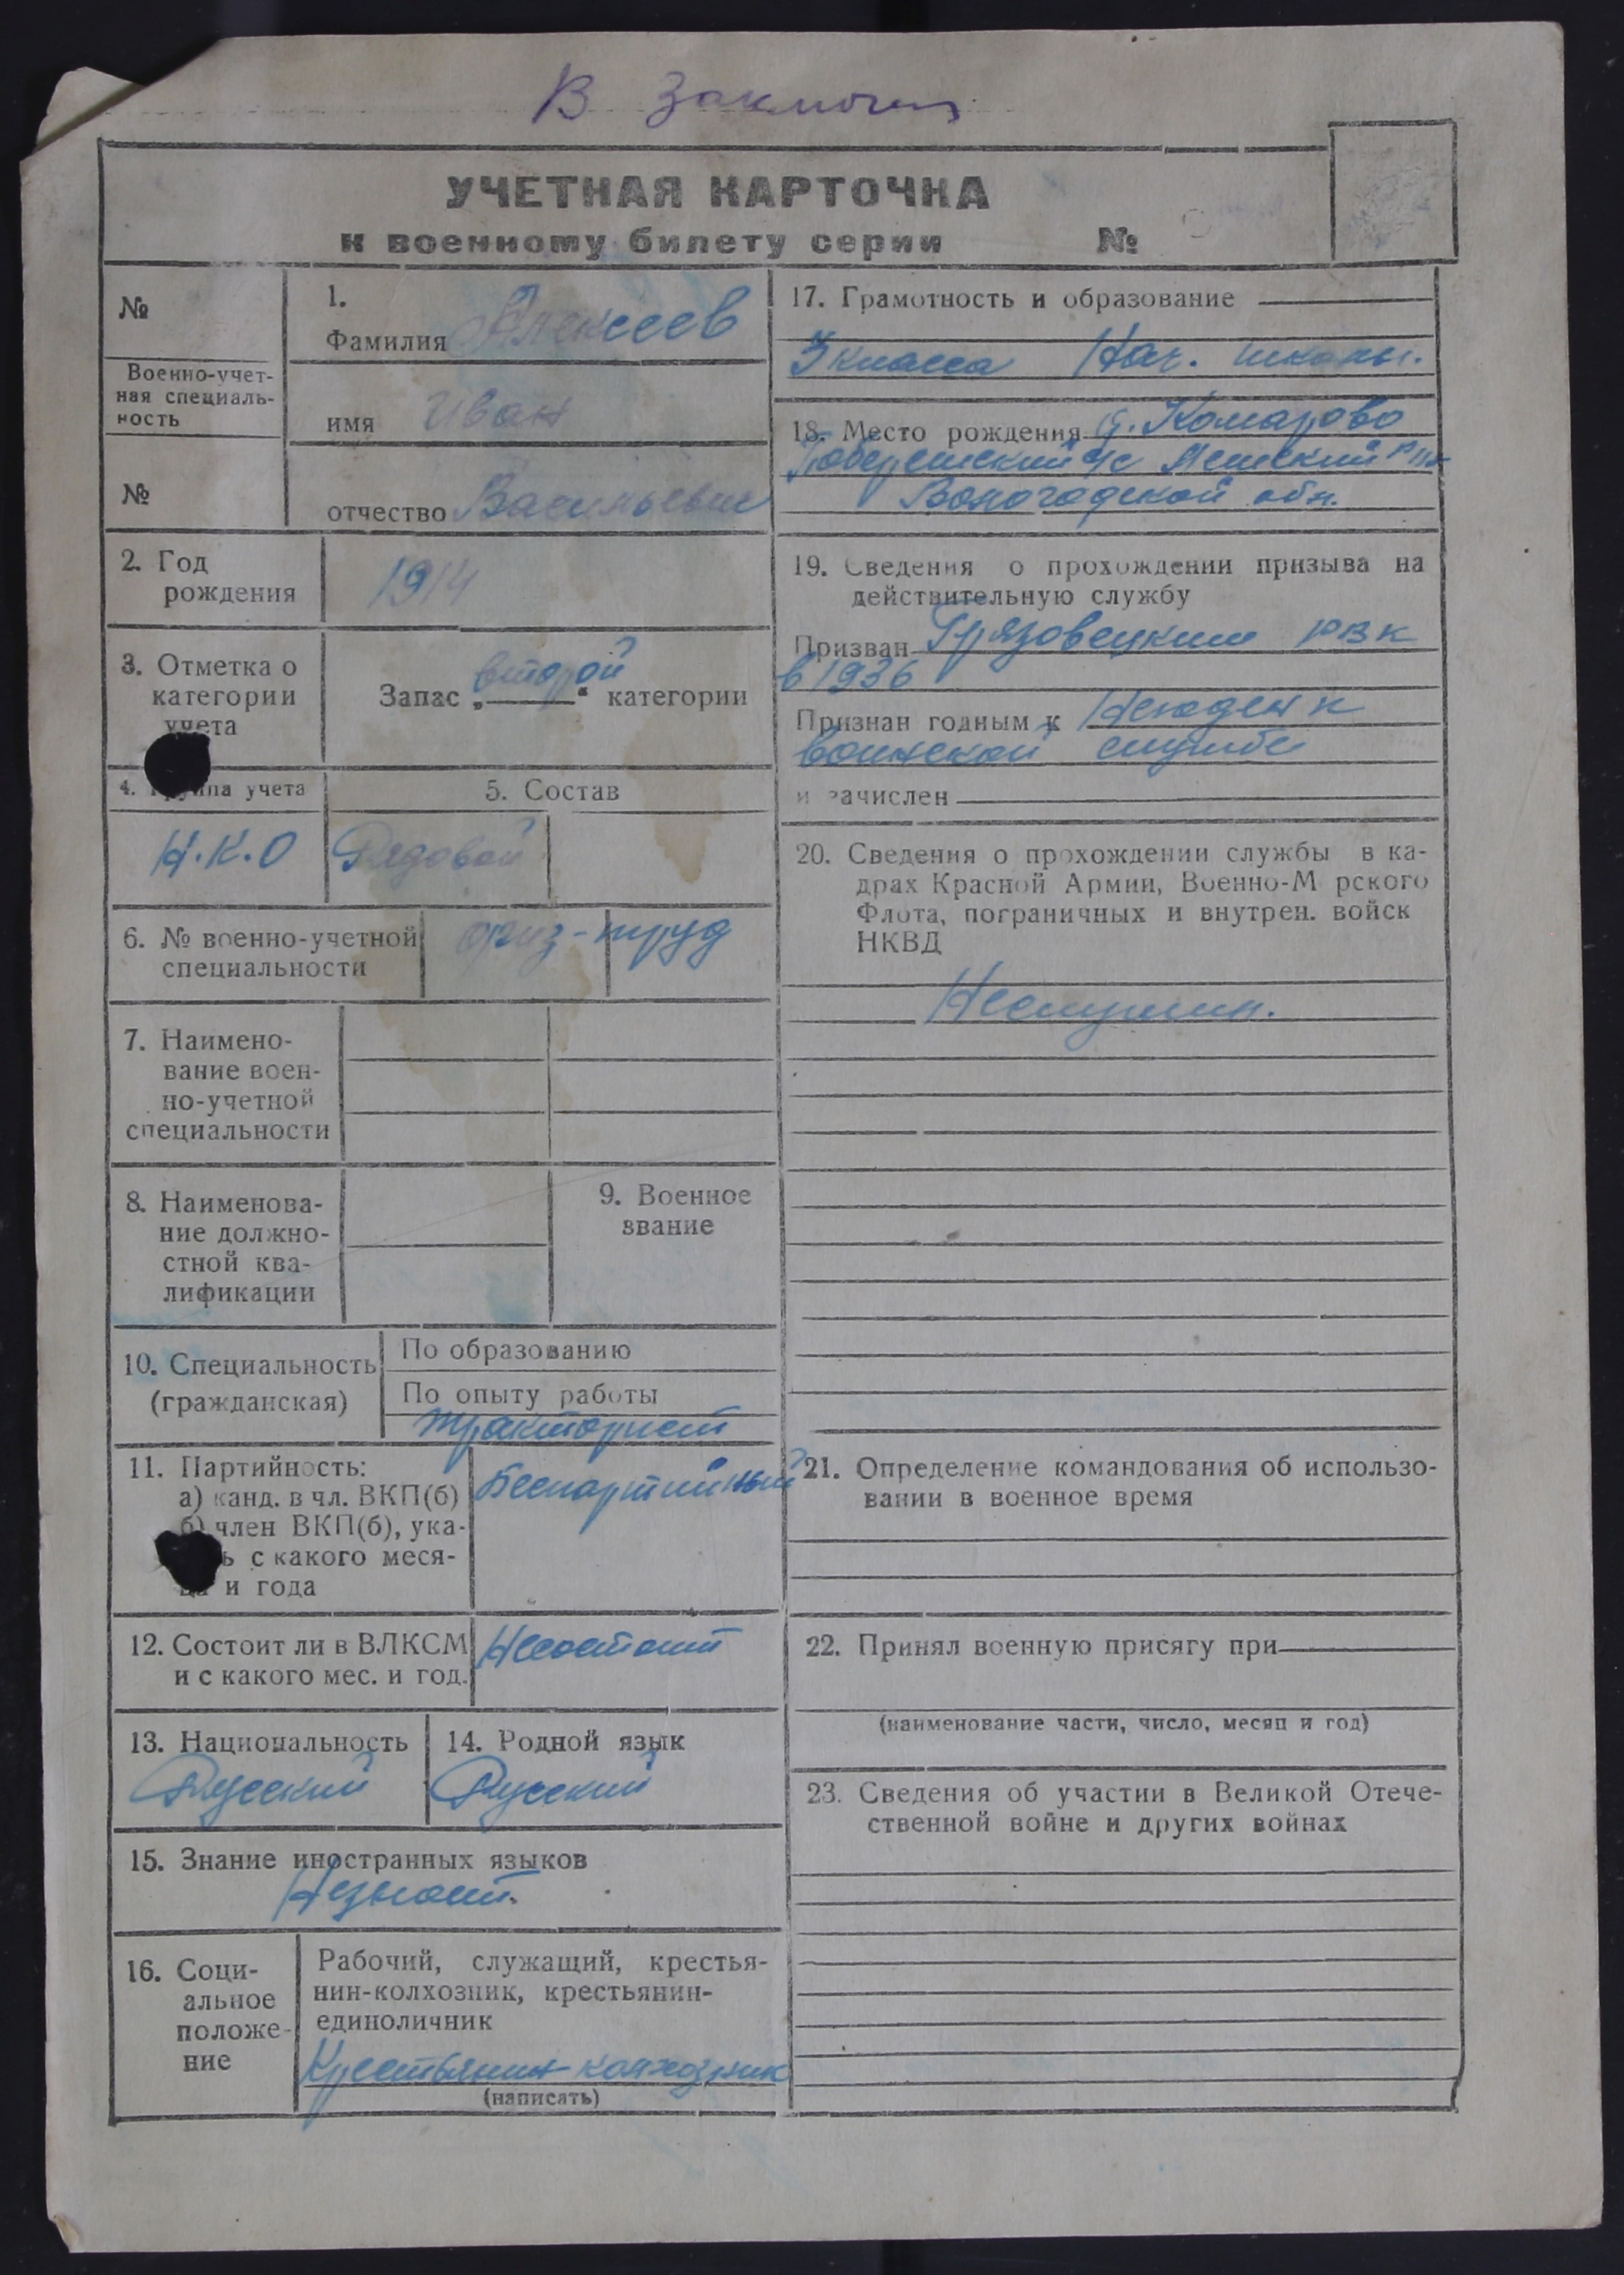 В заключен
УЧЕТНАЯ КАРТОЧКА
к военному билету серии №
№
Военно-учет-
ная специаль-
ность
№
1.
Фамилия Алексеев
имя Иван
отчество Васильевич
2. Год
рождения
1914
3. Отметка о
категории
учета
Запас „второй“ категории
4. Группа учета
5. Состав
Н.К.О
Рядовой
6. № военно-учетной
специальности
физ-труд
7. Наимено-
вание воен-
но-учетной
специальности
8. Наименова-
ние должно-
стной ква-
лификации
9. Военное
звание
10. Специальность
(гражданская)
По образованию
По опыту работы
тракторист
11. Партийность:
а) канд. в чл. ВКП(б)
б) член ВКП(б), ука-
ь с какого меся-
ца и года
Беспартийный
12. Состоит ли в ВЛКСМ
и с какого мес. и год.
Несостоит
13. Национальность
Русский
14. Родной язык
Русский
15. Знание иностранных языков
Незнает.
16. Соци-
альное
положе-
ние
Рабочий, служащий, крестья-
нин-колхозник, крестьянин-
единоличник
Крестьянин-колхозник
(написать)
17. Грамотность и образование
3 класса Нач. школы.
18. Место рождения д. Комарово
с/с Лежский р-н
Вологодской обл.
19. Сведения о прохождении призыва на
действительную службу
Призван Грязовецким РВК
в 1936
Признан годным к Негоден к
воинской службе
и зачислен
20. Сведения о прохождении службы в ка-
драх Красной Армии, Военно-М рского
Флота, пограничных и внутрен. войск
НКВД
Неслужил.
21. Определение командования об использо-
вании в военное время
22. Принял военную присягу при
(наименование части, число, месяц и год)
23. Сведения об участии в Великой Отече-
ственной войне и других войнах